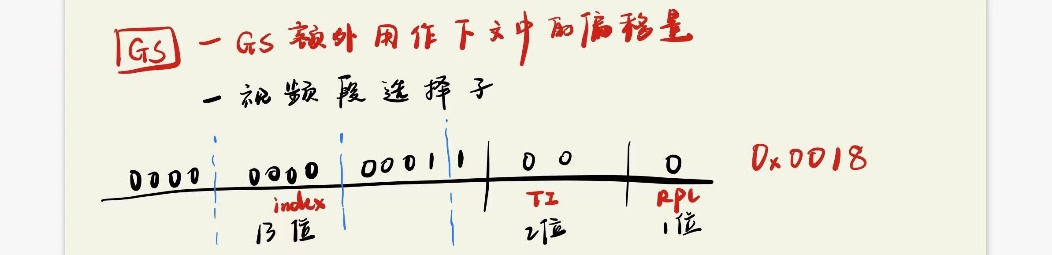 GS — GS 额外用作下文中的偏移量
— 视频段选择子
0000 0000 0001 1 00 0 0x0018
index TI RPL
13位 2位 1位